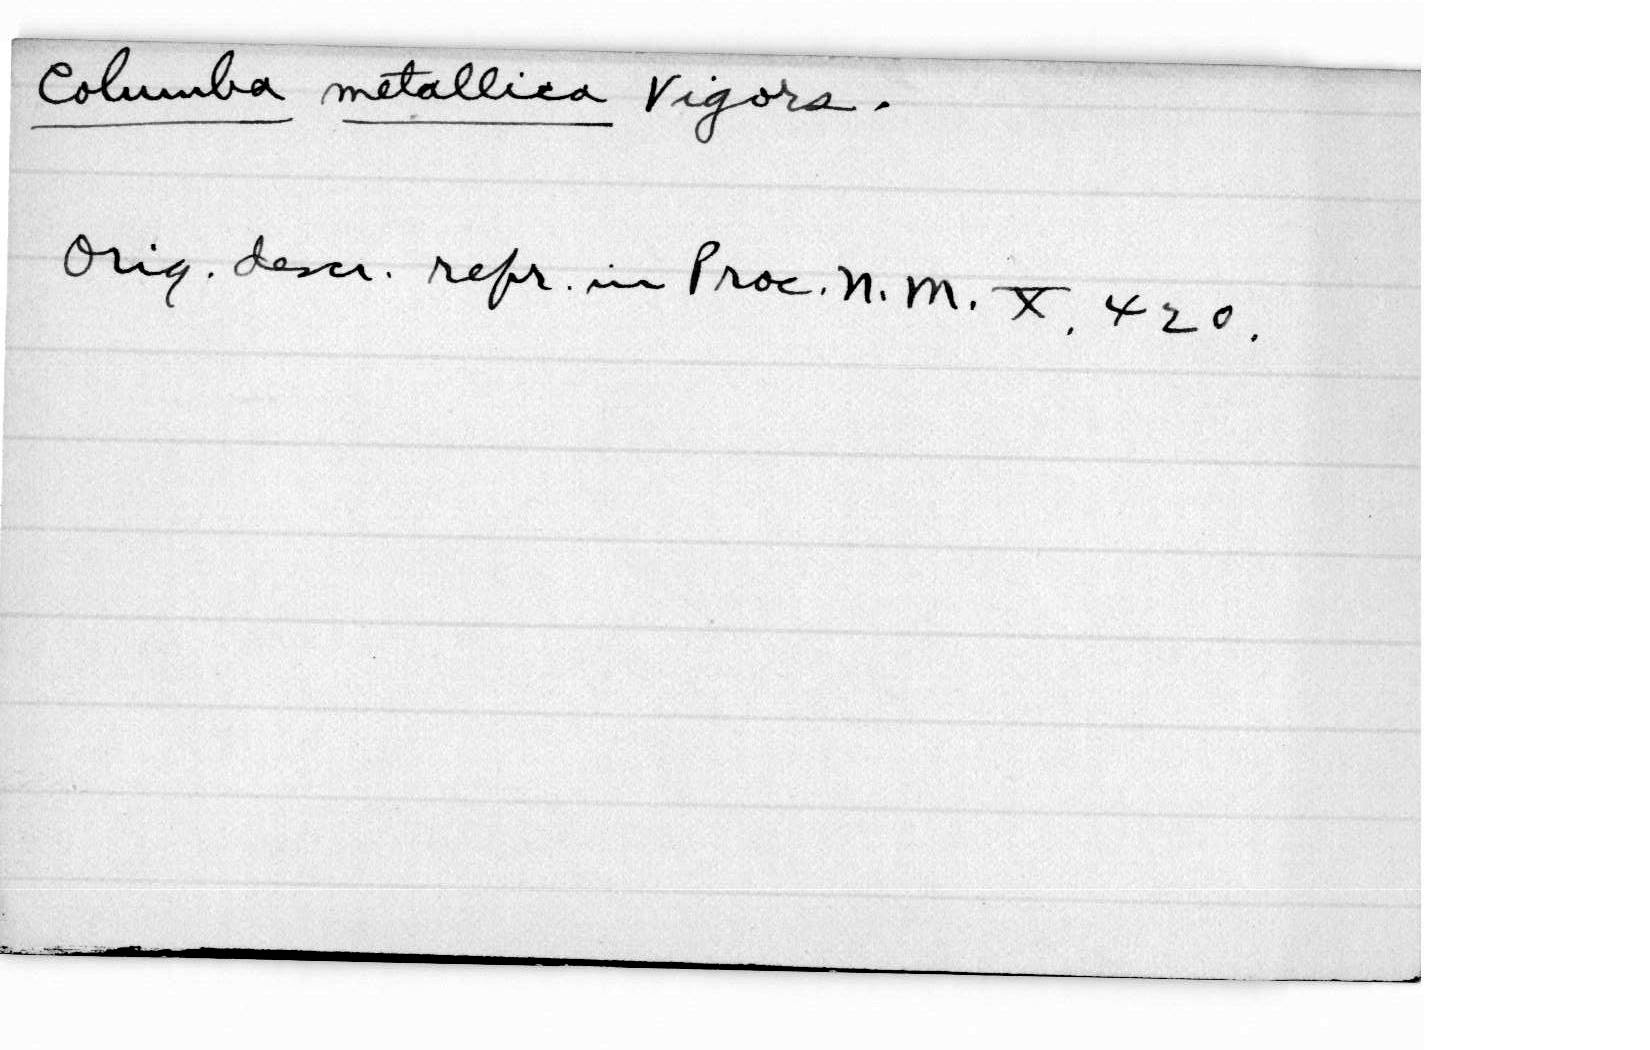 Columba metallica Vigors.
Orig. descr. repr. in Proc. N. M. X, 420.